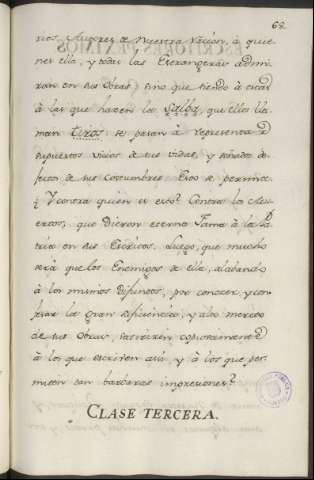 68
rios, Autores de Nuestra Nacion, à quie-
nes ella, y todas las Estrangeras admi-
ran en sus obras; sino que siendo à escar
à las que hacen la que ellos lla-
man se pasan à representar
supuestos vicios de sus vidas, y soñados de-
fectos de sus Costumbres. Esto se permite.
¿Y contra quien es esto? Contra los Mu-
ertos, que dieron eterna Fama à la Pa-
tria en sus Escritos. Luego, que mucho
será que los Enemigos de ella, alabando
à los mismos Difuntos, por conocer, y con-
fesar la gran suficiencia, y alto merito
de sus Obras, satiricen
à los que escriven asi, y à los que per-
miten tan barbaras impresiones?
CLASE TERCERA.